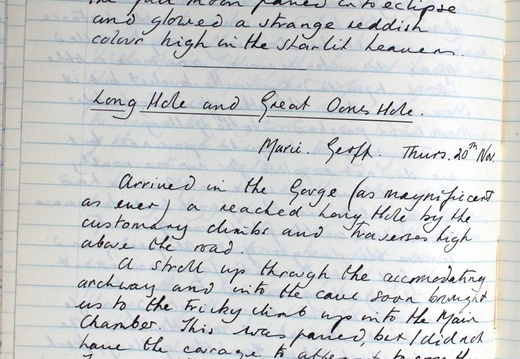 the full moon passed into eclipse
and glowed a strange reddish
colour high in the starlit heavens.
Long Hole and Great Oones Hole.
Marie. Geoff. Thurs. 20th Nov.
Arrived in the Gorge (as magnificent
as ever) & reached Long Hole by the
customary climbs and traverses high
above the road.
A stroll up through the accomodating
archway and into the cave soon brought
us to the tricky climb up into the Main
Chamber. This was passed, but I did not
have the courage to attempt